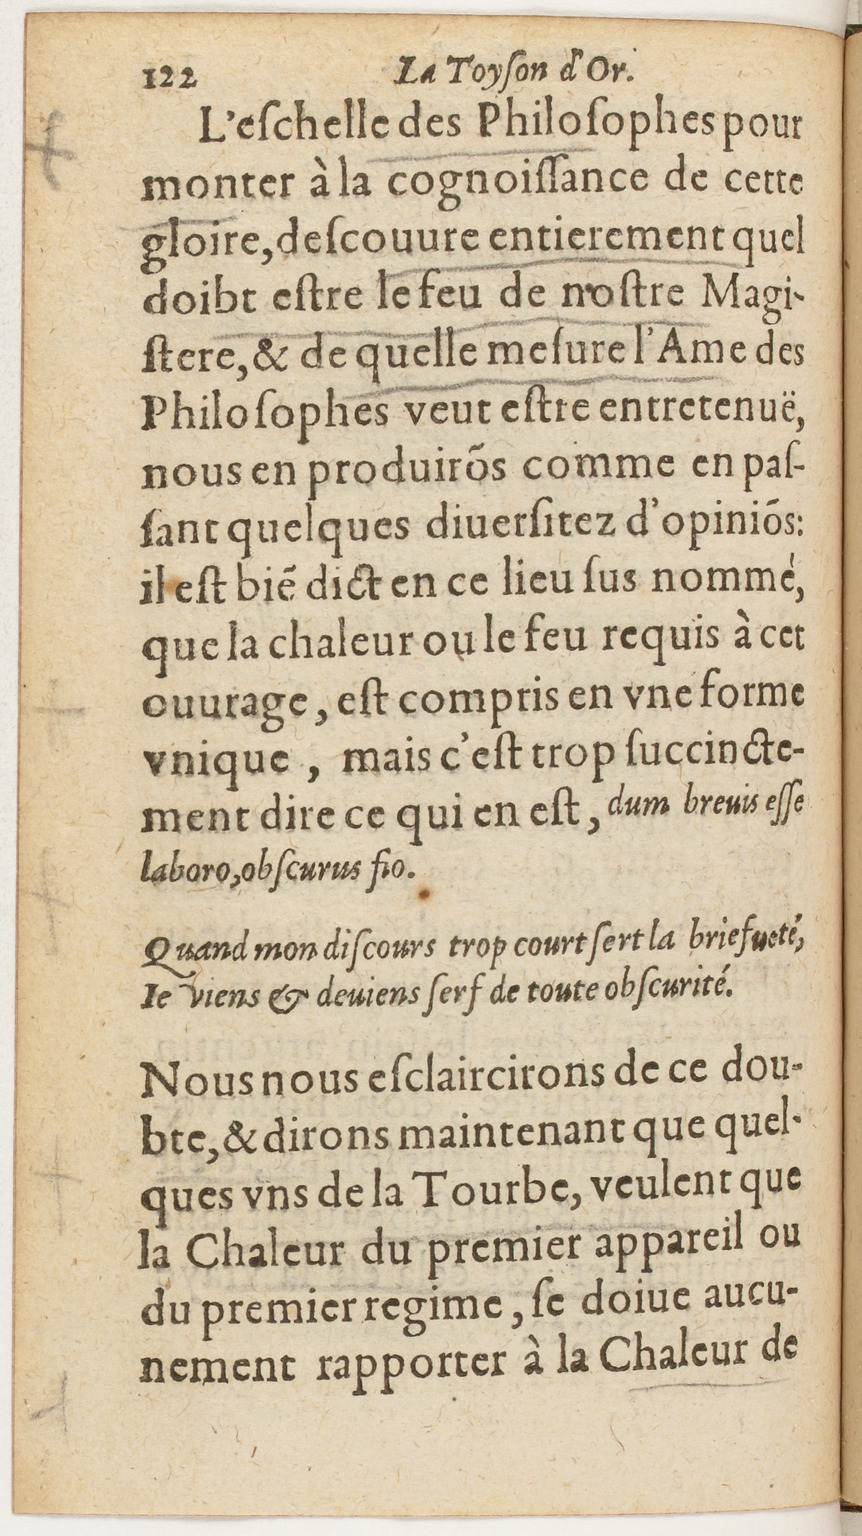 122 La Toyſon d'Or.
L'eſchelle des Philoſophes pour
monter à la cognoiſſance de cette
gloire, deſcouure entierement quel
doibt eſtre le feu de noſtre Magi-
ſtere, & de quelle meſure l'Ame des
Philoſophes veut eſtre entretenuë,
nous en produirõs comme en paſ-
ſant quelques diuerſitez d'opiniõs:
il eſt biẽ dict en ce lieu ſus nommé,
que la chaleur ou le feu requis à cet
ouurage, eſt compris en vne forme
vnique, mais c'eſt trop ſuccincte-
ment dire ce qui en eſt, dum breuis eſſe
laboro, obſcurus fio.
Quand mon diſcours trop court ſert la briefueté,
Ie viens & deuiens ſerf de toute obſcurité.
Nous nous eſclaircirons de ce dou-
bte, & dirons maintenant que quel-
ques vns de la Tourbe, veulent que
la Chaleur du premier appareil ou
du premier regime, ſe doiue aucu-
nement rapporter à la Chaleur de